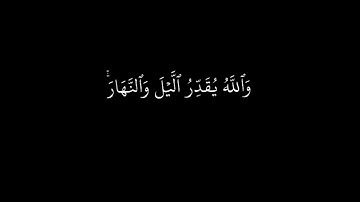 وَٱللَّهُ يُقَدِّرُ ٱلَّيْلَ وَٱلنَّهَارَۚ